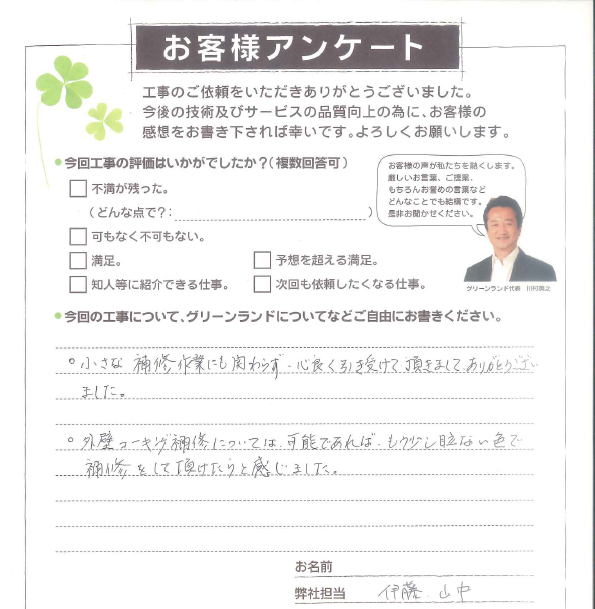 お客様アンケート
工事のご依頼をいただきありがとうございました。
今後の技術及びサービスの品質向上の為に、お客様の
感想をお書き下されば幸いです。よろしくお願いします。
今回工事の評価はいかがでしたか?(複数回答可)
不満が残った。
(どんな点で?:                    )
可もなく不可もない。
満足。
予想を超える満足。
知人等に紹介できる仕事。
次回も依頼したくなる仕事。
お客様の声が私たちを熱くします。
厳しいお言葉、ご提案、
もちろんお誉めの言葉など
どんなことでも結構です。
是非お聞かせください。
グリーンランド代表 川村眞之
今回の工事について、グリーンランドについてなどご自由にお書きください。
○小さな補修作業にも関わらず、心良く引き受けて頂きまして、ありがとうござい
ました。
○外壁コーキング補修については、可能であれば、もう少し目立ない色で
補修をして頂けたらと感じました。
お名前
弊社担当 伊藤 山中